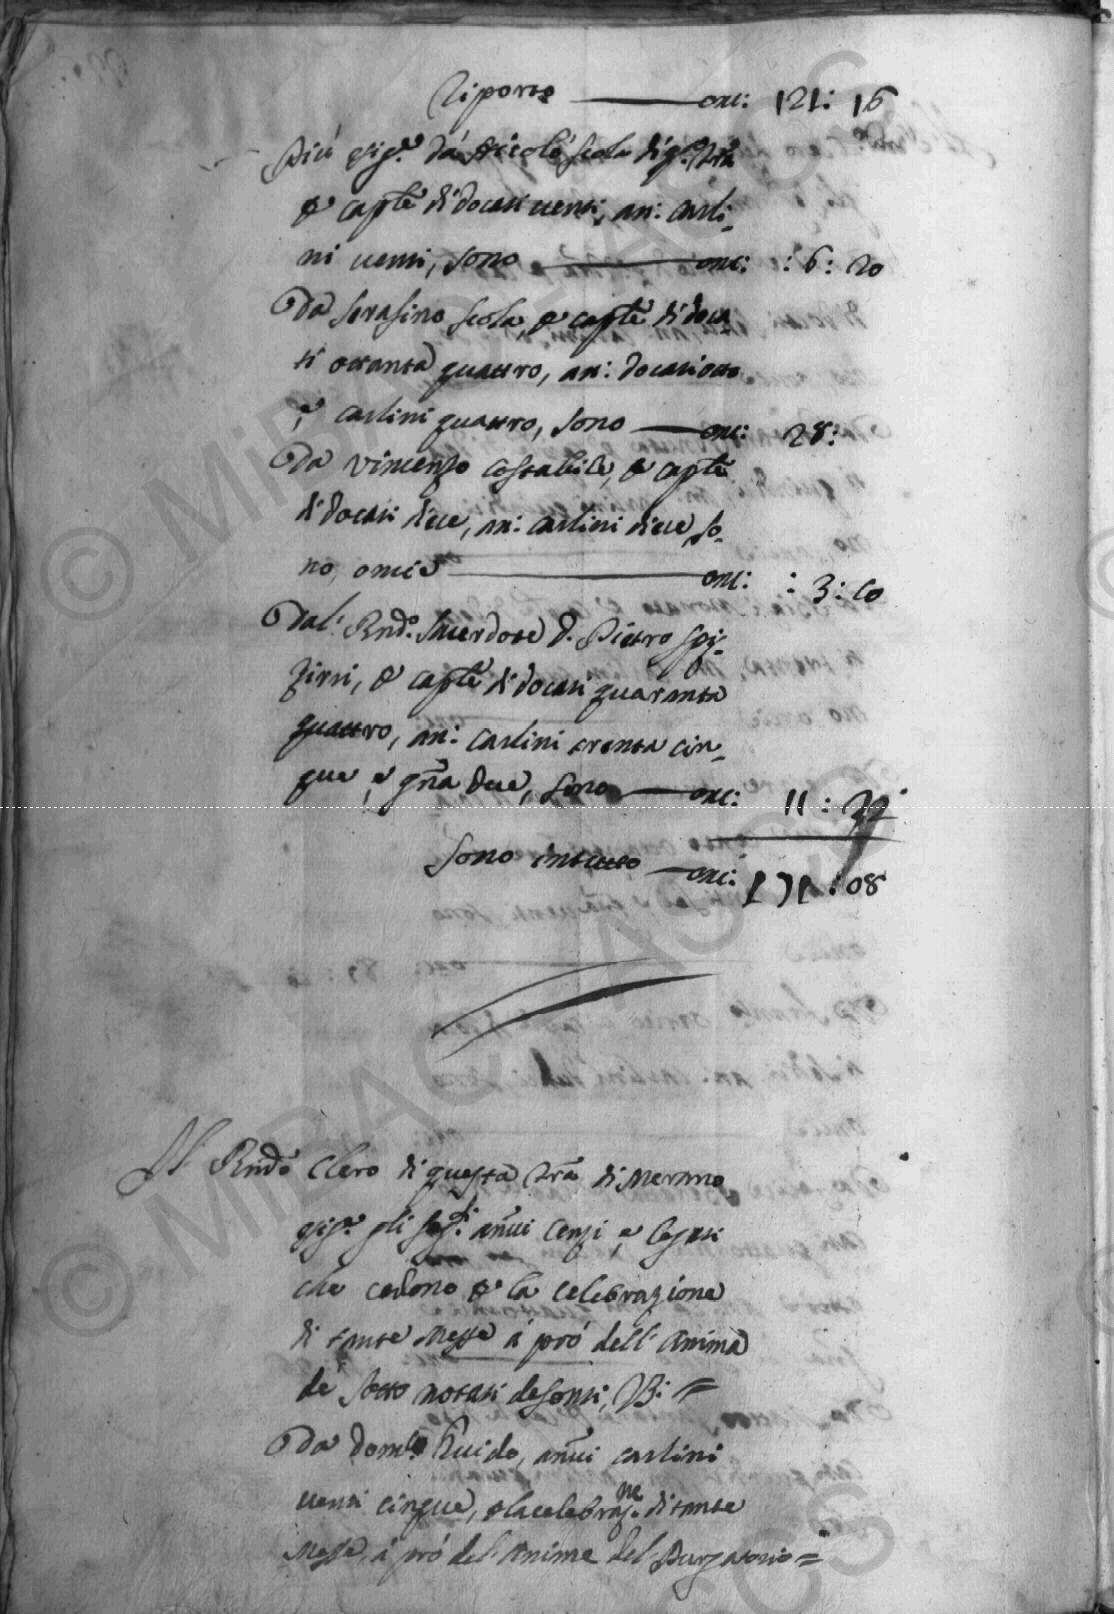 Riporto ——— onc: 121: 16
Più esig.e da Nicolò Scola di q.a Trã
p capt̃e di docati venti, an: carli-
ni venti, sono ——— onc: : 6: 20
Da Serafino Scola, p capt̃e di doca
ti ottanta quattro, an: docati otto
e carlini quattro, sono ——— onc: 28:
Da Vincenzo Costabile, p capt̃e
di docati diece, an: carlini diece, so-
no, oncie ——— onc: : 3: 10
Dal Rnd.o Sacerdote D. Pietro Spi-
zirri, p capt̃e di docati quaranta
quattro, an: carlini trenta cin-
que, e gr̃na due, sono ——— onc: 11: 22
Sono intutto — onc: 171: 08
Il Rnd.o Clero di questa Trã di Marano
esig.e gli seg.ti añui censi, e legati
che cedono p la celebrazione
di tante Messe à prò dell' Anima
de' sotto notati defonti, Vz: =
Da Dom.co Guido, añui carlini
venti cinque, p la celebraz.ne di tante
Messe, à prò del' Anime del Purgatorio =
© MiBAC - ASCS
© MiBAC - ASCS